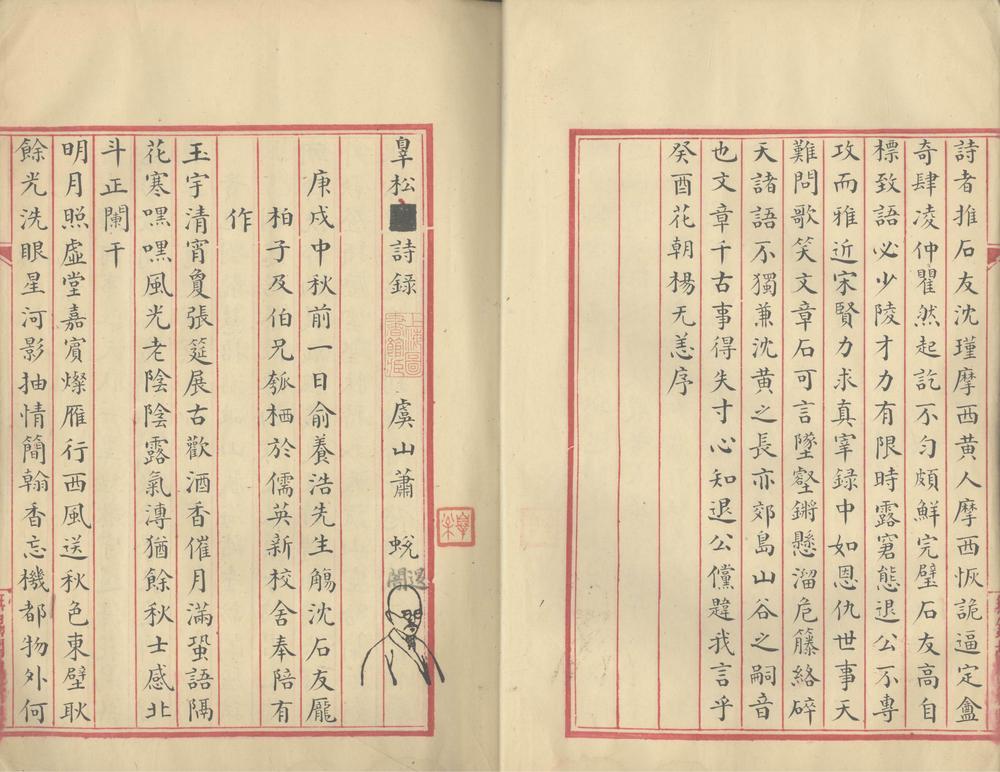 詩者推石友沈瑾摩西黃人摩西恢詭逼定盦
奇肆凌仲瞿然起訖不勻頗鮮完璧石友高自
標致語必少陵才力有限時露窘態退公不專
攻而雅近宋賢力求真宰録中如恩仇世事天
難問歌笑文章石可言墜壑鏘懸溜危籐絡碎
天諸語不獨兼沈黃之長亦郊島山谷之嗣音
也文章千古事得失寸心知退公儻韙我言乎
癸酉花朝楊无恙序
皐松詩録 虞山蕭 蛻
庚戌中秋前一日俞養浩先生觴沈石友龐
柏子及伯兄瓠栖於儒英新校舍奉陪有
作
玉宇清宵敻張筵展古歡酒香催月滿蛩語隔
花寒嘿嘿風光老陰陰露氣漙猶餘秋士感北
斗正闌干
明月照虛堂嘉賓燦雁行西風送秋色東壁耿
餘光洗眼星河影抽情簡翰香忘機都物外何
上海圖書館藏
退闇